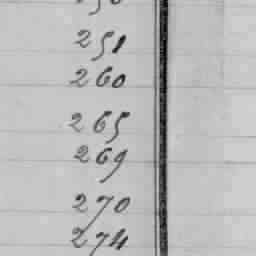 251
260
265
269
270
274